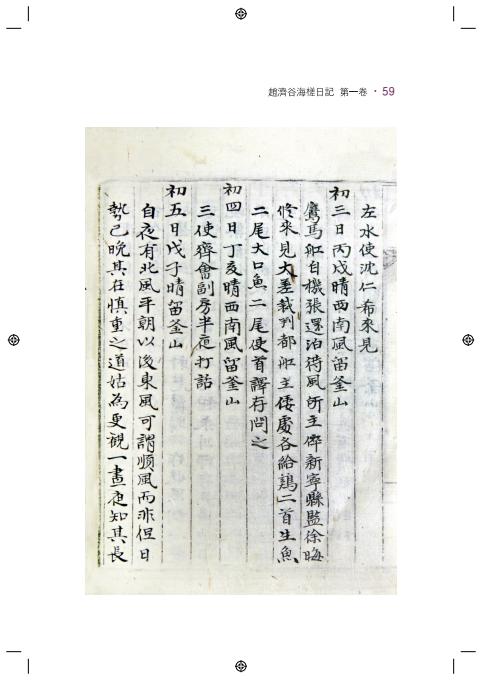 趙濟谷海槎日記 第一卷 · 59
左水使沈仁希來見
初三日丙戌晴西南風留釜山
鷹馬舡自機張還泊待風所主倅新寧縣監徐晦
修來見大差裁判都舡主倭處各給鷄二首生魚
二尾大口魚二尾使首譯存問之
初四日丁亥晴西南風留釜山
三使齊會副房半夜打話
初五日戊子晴留釜山
自夜有北風平朝以後東風可謂順風而非但日
勢已晩其在愼重之道姑爲更觀一晝夜知其長